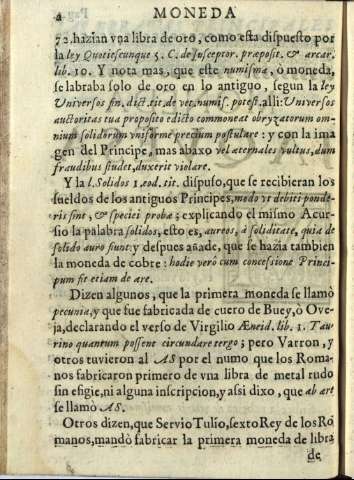 2 MONEDA
72. hazian vna libra de oro, como esta dispuesto por
la ley Quotiescunque 5. C. de susceptor. præposit. & arcar.
lib. 10. Y nota mas, que este numisma, ò moneda,
se labraba solo de oro en lo antiguo, segun la ley
Universos fin. dict. tit. de vet. numis. potest. alli: Universos
auctoritas tua proposito edicto commoneat obryzatorum om-
nium solidorum vniforme precium postulare: y con la ima
gen del Principe, mas abaxo vel æternales vultus, dum
fraudibus studet, duxerit violare.
Y la l. Solidos 1. eod. tit. dispuso, que se recibieran los
sueldos de los antiguos Principes, modo vt debiti ponde-
ris sint, & speciei probæ; explicando el mismo Acur-
sio la palabra solidos, esto es, aureos, à soliditate, quia de
solido auro fiunt: y despues añade, que se hazia tambien
la moneda de cobre: hodie verò cum concessione Princi-
pum fit etiam de ære.
Dizen algunos, que la primera moneda se llamò
pecunia, y que fue fabricada de cuero de Buey, ò Ove-
ja, declarando el verso de Virgilio Æneid. lib. 1. Tau-
rino quantum possent circundare tergo; pero Varron, y
otros tuvieron al AS por el numo que los Roma-
nos fabricaron primero de vna libra de metal rudo
sin efigie, ni alguna inscripcion, y assi dixo, que ab ære
se llamò AS.
Otros dizen, que Servio Tulio, sexto Rey de los Ro
manos, mandò fabricar la primera moneda de libra
de